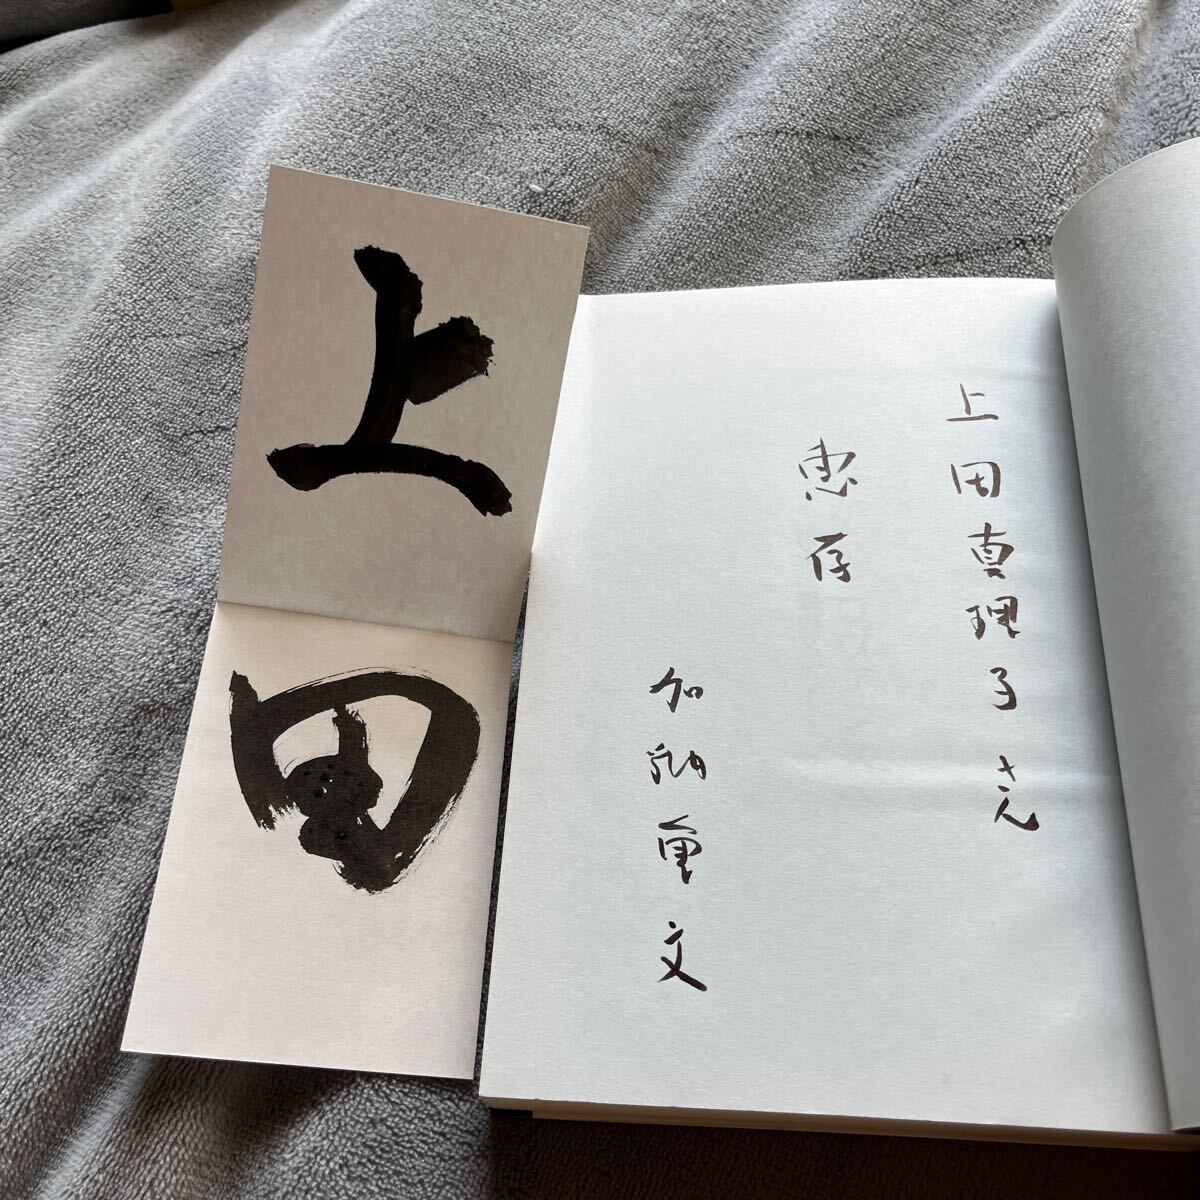 上田真理子さん
恵存
加納重文
上田